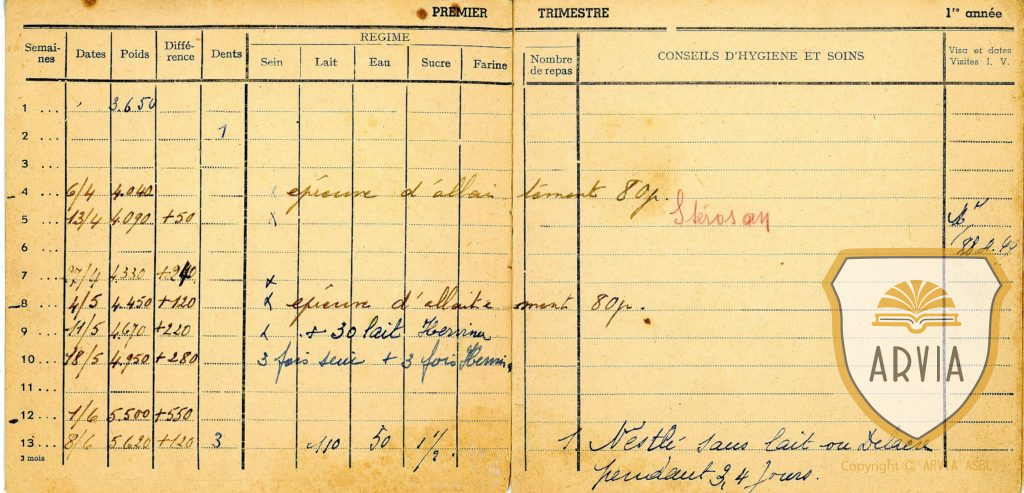 PREMIER TRIMESTRE 1re année
Semai-nes Dates Poids Diffé-rence Dents REGIME Nombre de repas CONSEILS D'HYGIENE ET SOINS Visa et dates Visites I. V.
Sein Lait Eau Sucre Farine
1 ... 3.650
2 ... 1
3 ...
4 ... 6/4 4.040 épreuve d'allaitement 80p.
5 ... 13/4 4.090 +50 x Stérosan
6 ...
7 ... 27/4 4.330 +240 x
8 ... 4/5 4.450 +120 x épreuve d'allaitement 80p.
9 ... 11/5 4.670 +220 x + 30 lait
10 ... 18/5 4.950 +280 3 fois sein + 3 fois
11 ...
12 ... 1/6 5.500 +550
13 ... 8/6 5.620 +120 3 110 50 1 1/2. 1. Nestlé sans lait ou
3 mois pendant 3, 4 jours.
ARVIA
Copyright © ARVIA ASBL